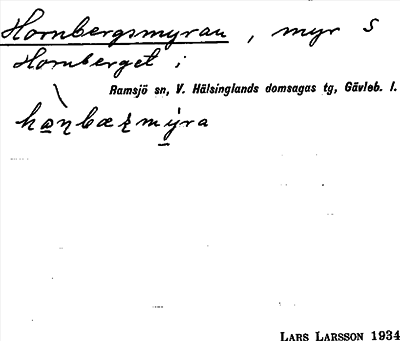 Hornbergsmyran, myr S
Hornberget i
Ramsjö sn, V. Hälsinglands domsagas tg, Gävleb. l.
LARS LARSSON 1934